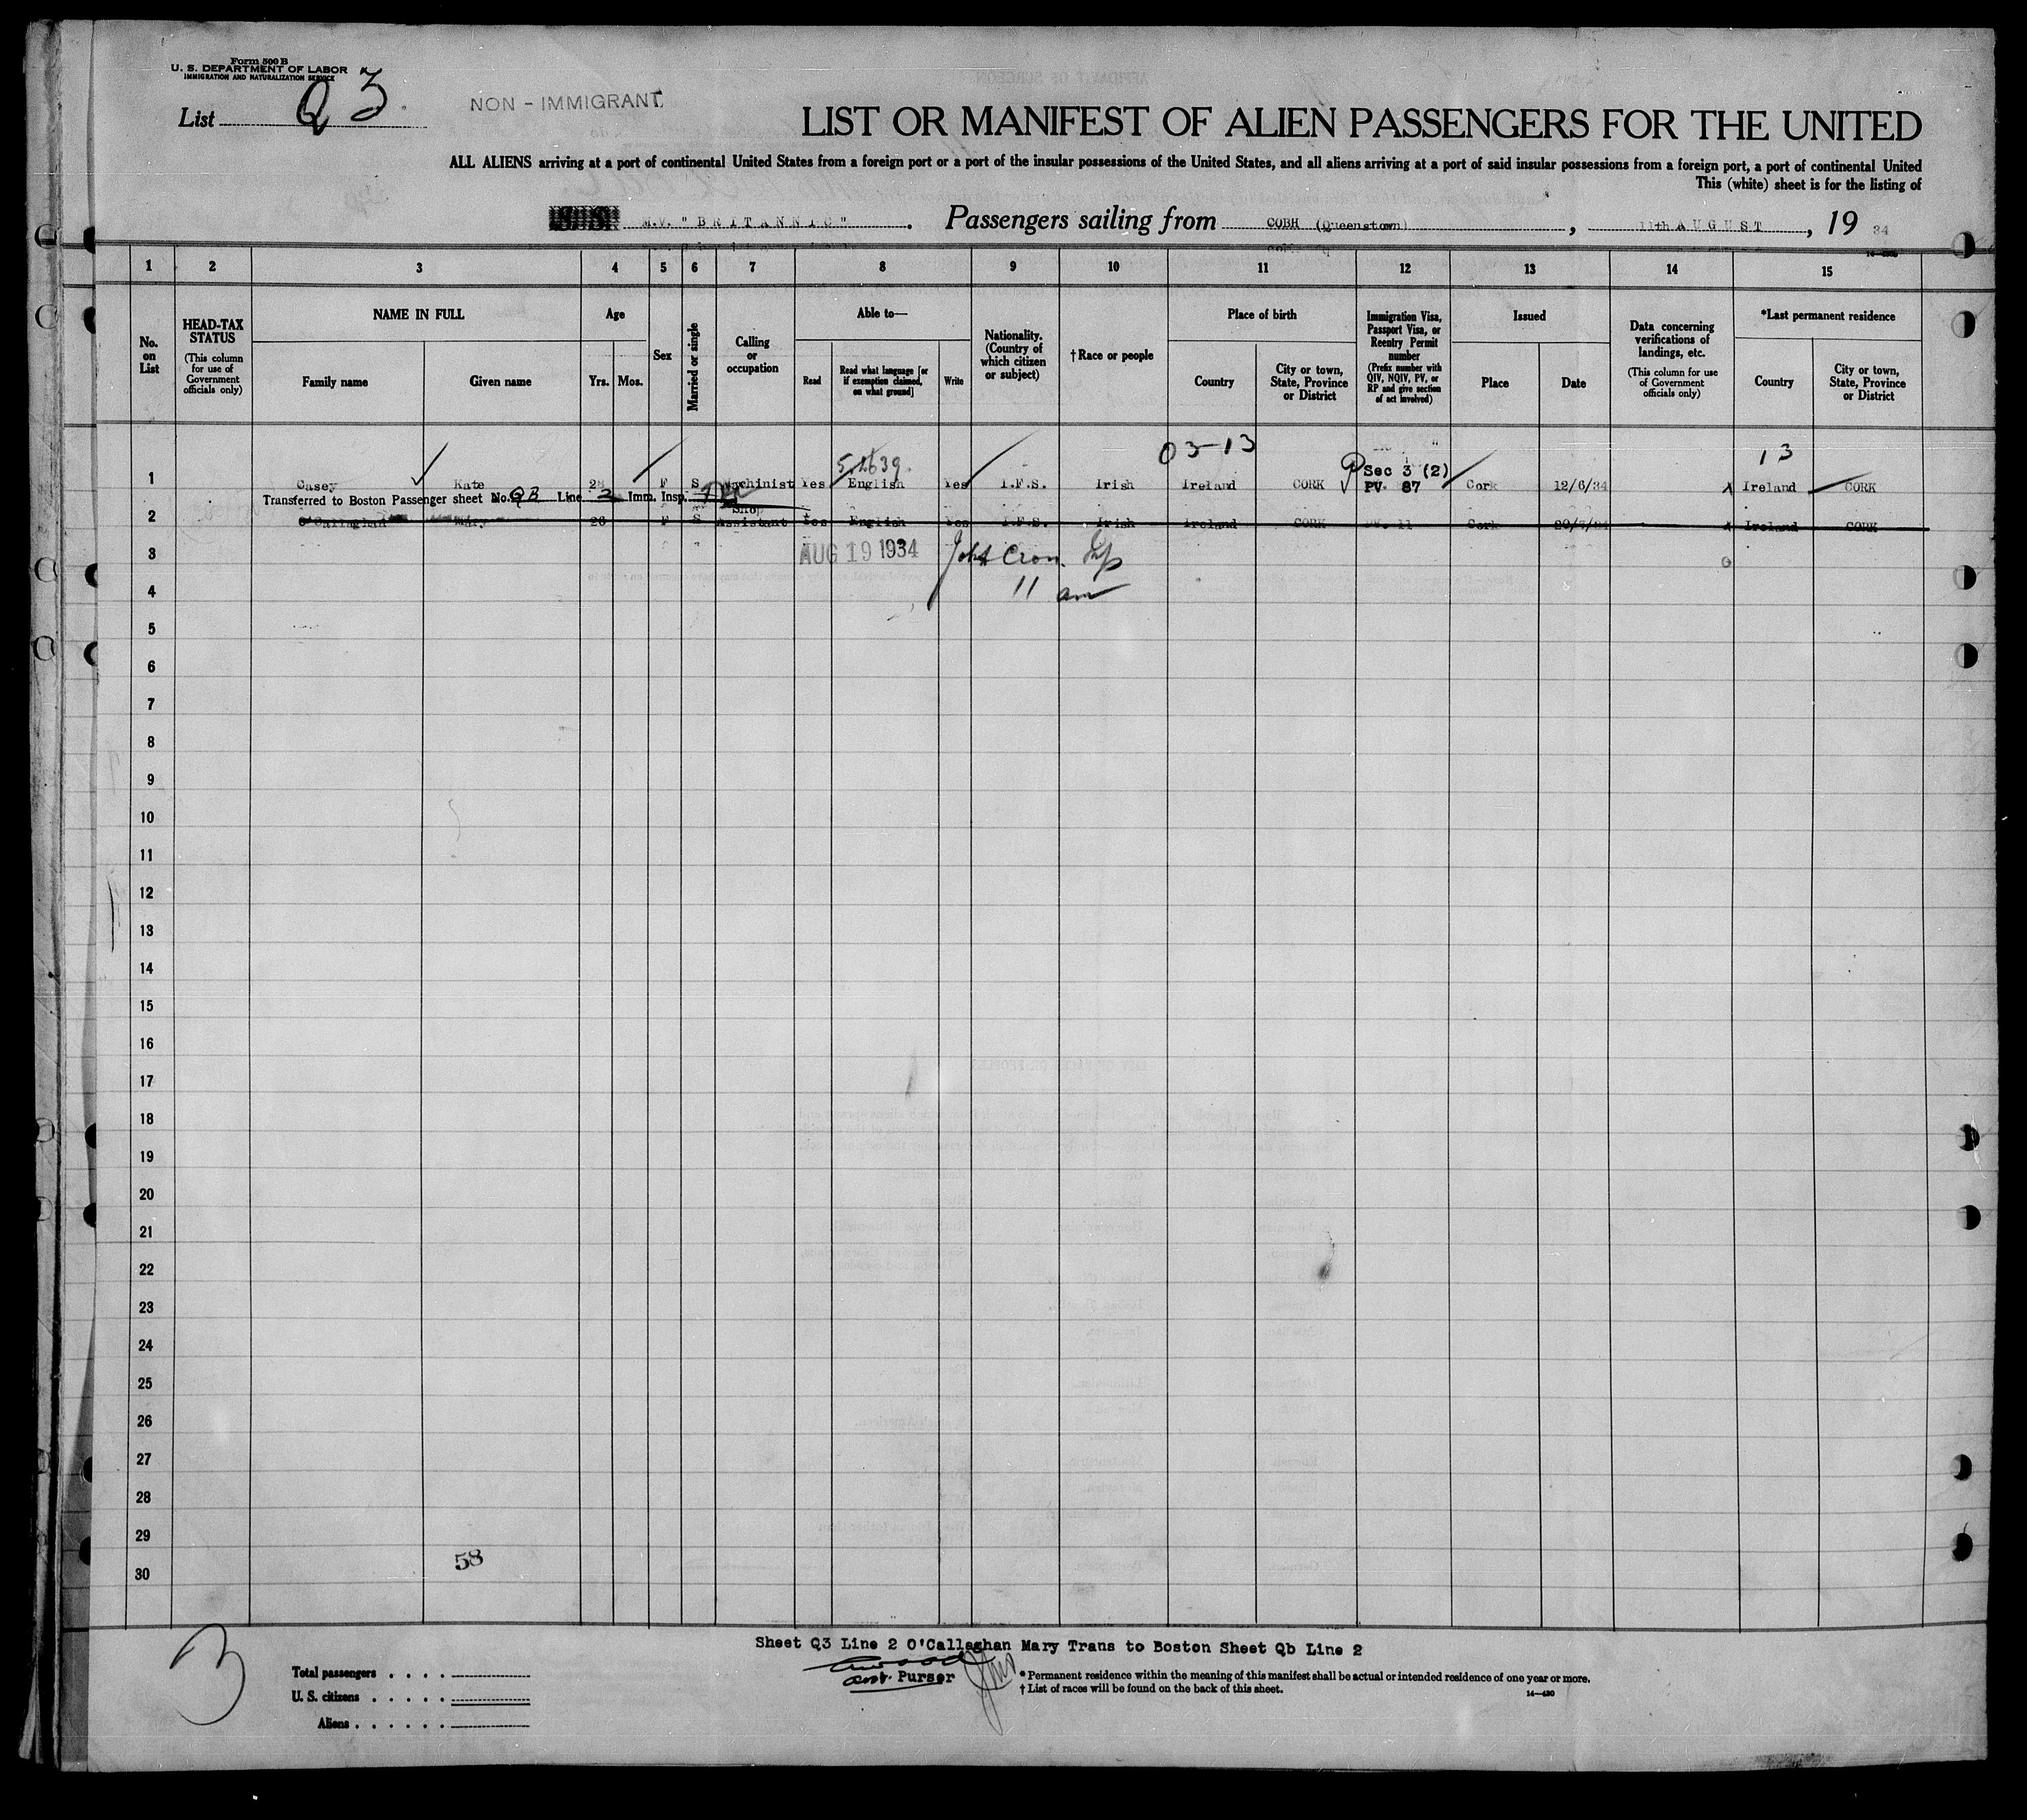 Form 500 B
U. S. DEPARTMENT OF LABOR
IMMIGRATION AND NATURALIZATION SERVICE
List Q3
NON - IMMIGRANT
LIST OR MANIFEST OF ALIEN PASSENGERS FOR THE UNITED
ALL ALIENS arriving at a port of continental United States from a foreign port or a port of the insular possessions of the United States, and all aliens arriving at a port of said insular possessions from a foreign port, a port of continental United
This (white) sheet is for the listing of
S S M.V. "BRITANNIC". Passengers sailing from COBH (Queenstown), 11th AUGUST, 19 34
1 2 3 4 5 6 7 8 9 10 11 12 13 14 15
No. on List
HEAD-TAX STATUS (This column for use of Government officials only)
NAME IN FULL
Family name
Given name
Age
Yrs.
Mos.
Sex
Married or single
Calling or occupation
Able to—
Read
Read what language [or if exemption claimed, on what ground]
Write
Nationality. (Country of which citizen or subject)
† Race or people
Place of birth
Country
City or town, State, Province or District
Immigration Visa, Passport Visa, or Reentry Permit number (Prefix number with QIV, NQIV, PV, or RP and give section of act involved)
Issued
Place
Date
Data concerning verifications of landings, etc. (This column for use of Government officials only)
*Last permanent residence
Country
City or town, State, Province or District
03-13
13
Sec 3 (2)
1 Casey Kate 28 F S Machinist Yes English Yes I.F.S. Irish Ireland CORK PV. 87 Cork 12/6/34 Ireland CORK
Transferred to Boston Passenger sheet No. QB Line 2 Imm. Insp.
2 O'Callaghan Mary 26 F S Shop Assistant Yes English Yes I.F.S. Irish Ireland CORK 11 Cork Ireland CORK
3 AUG 19 1934 John Cron
4 11 am
5
6
7
8
9
10
11
12
13
14
15
16
17
18
19
20
21
22
23
24
25
26
27
28
29
58
30
Sheet Q3 Line 2 O'Callaghan Mary Trans to Boston Sheet Qb Line 2
3
Total passengers
U. S. citizens
Aliens
Purser
* Permanent residence within the meaning of this manifest shall be actual or intended residence of one year or more.
† List of races will be found on the back of this sheet.
14—420